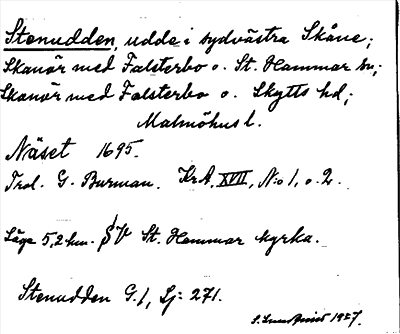 Stenudden, udde i sydvästra Skåne;
Skanör med Falsterbo o. St. Hammar sn;
Skanör med Falsterbo o. Skytts hd;
Malmöhus l.
Näset 1695.
Trol. G. Burman. KrA, XVII, N:o 1, o. 2.
Läge 5,2 km. SV St. Hammar kyrka.
Stenudden G. 1, Lj: 271.
1927.